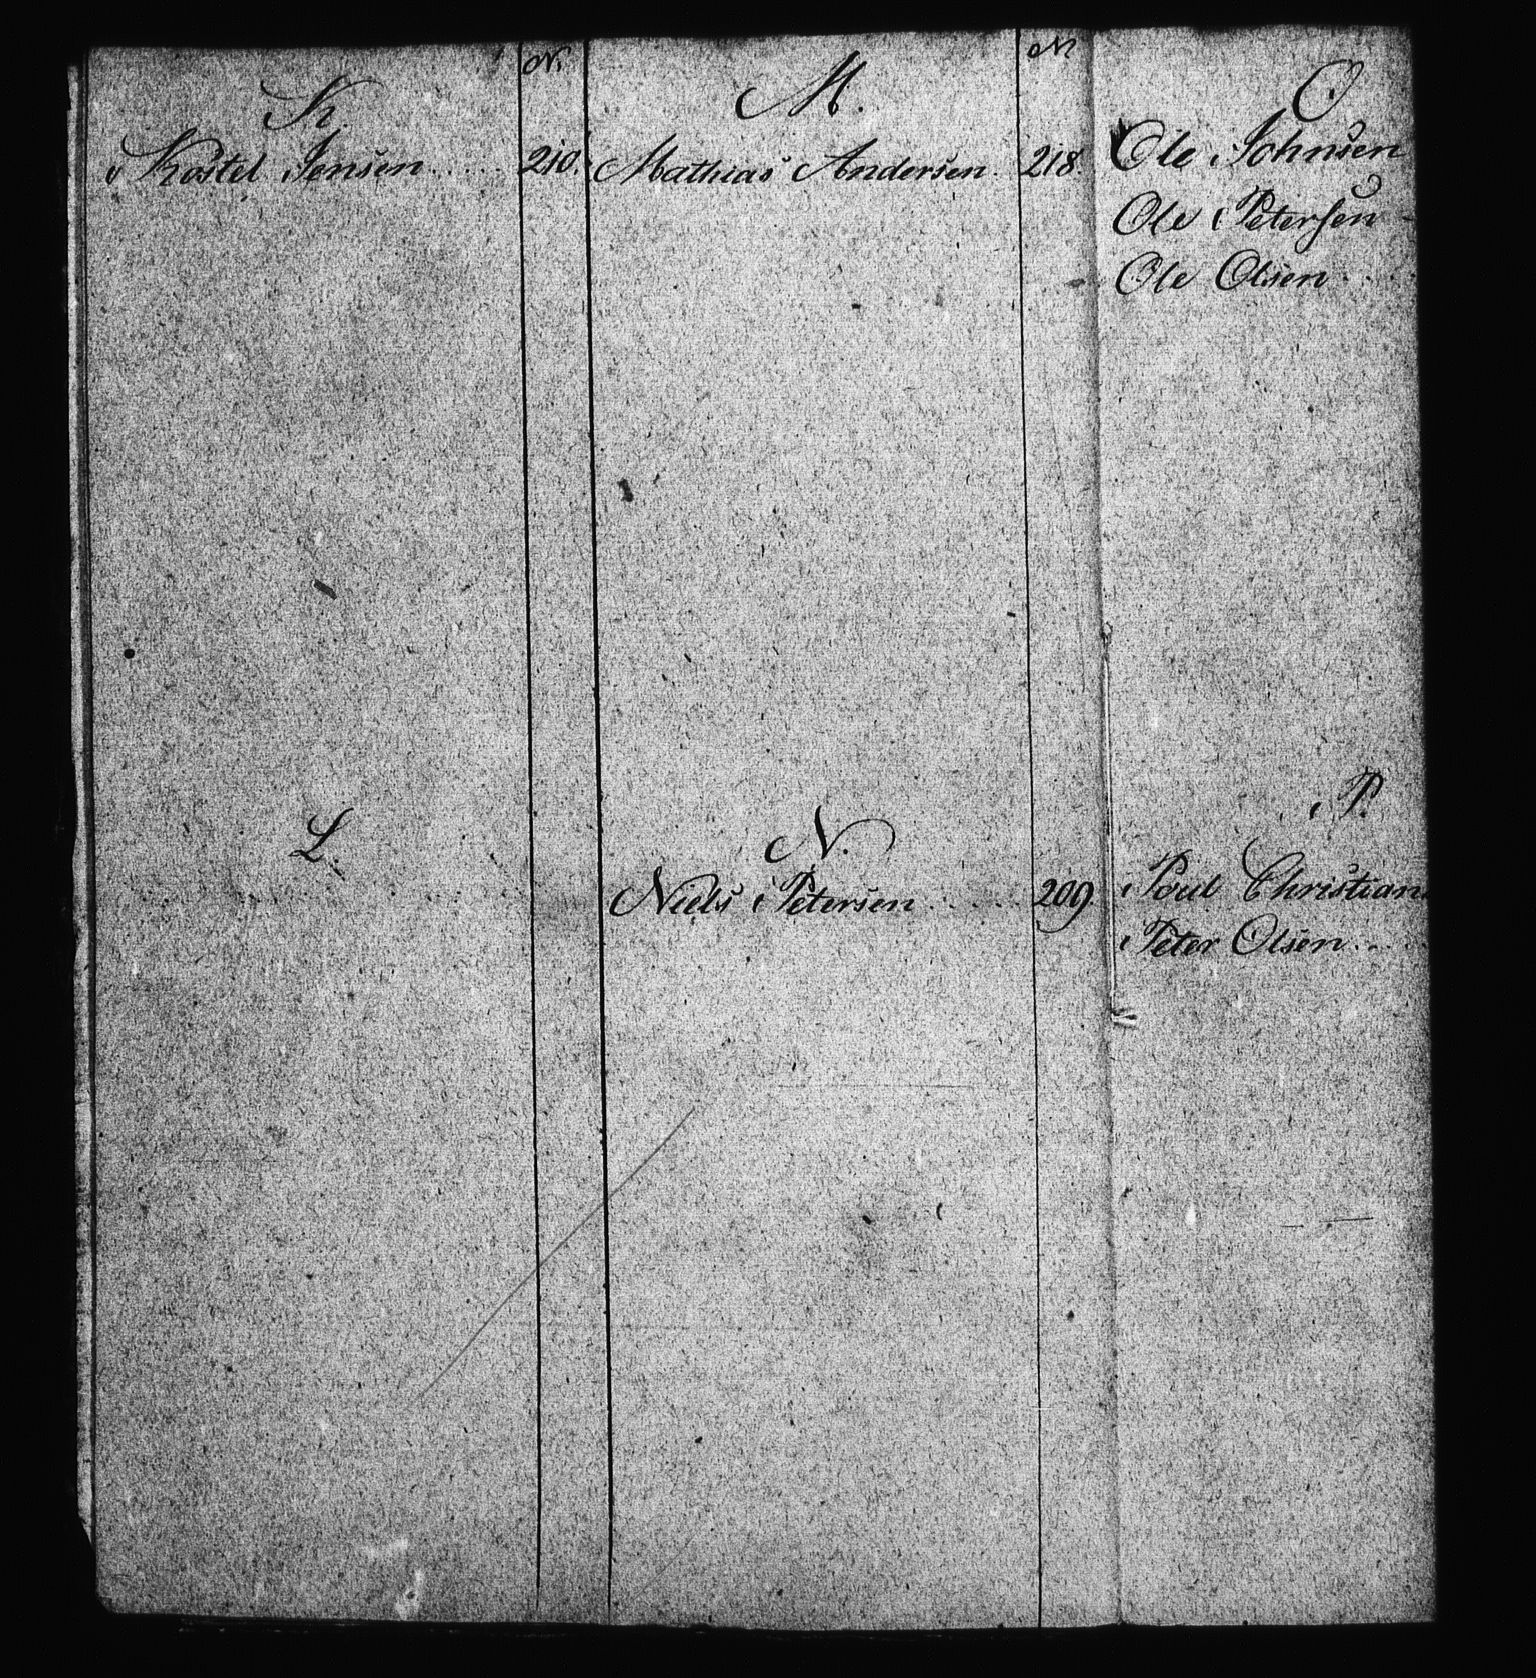 N.
K.
Kostel Jensen..... 210.
L.
N
M.
Mathias Andersen. 218.
N.
Niels Petersen..... 209.
O
Ole Johnsen
Ole Petersen
Ole Olsen...
P.
Poul Christian
Peter Olsen....